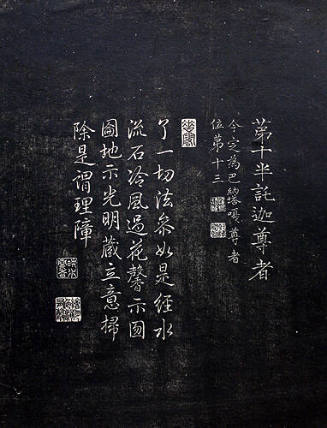 第十半託迦尊者
今定為巴納塔嘎尊者
位第十三
了一切法參如是經水
流石冷風過花馨示圓
圓地示光明藏立意掃
除是謂理障